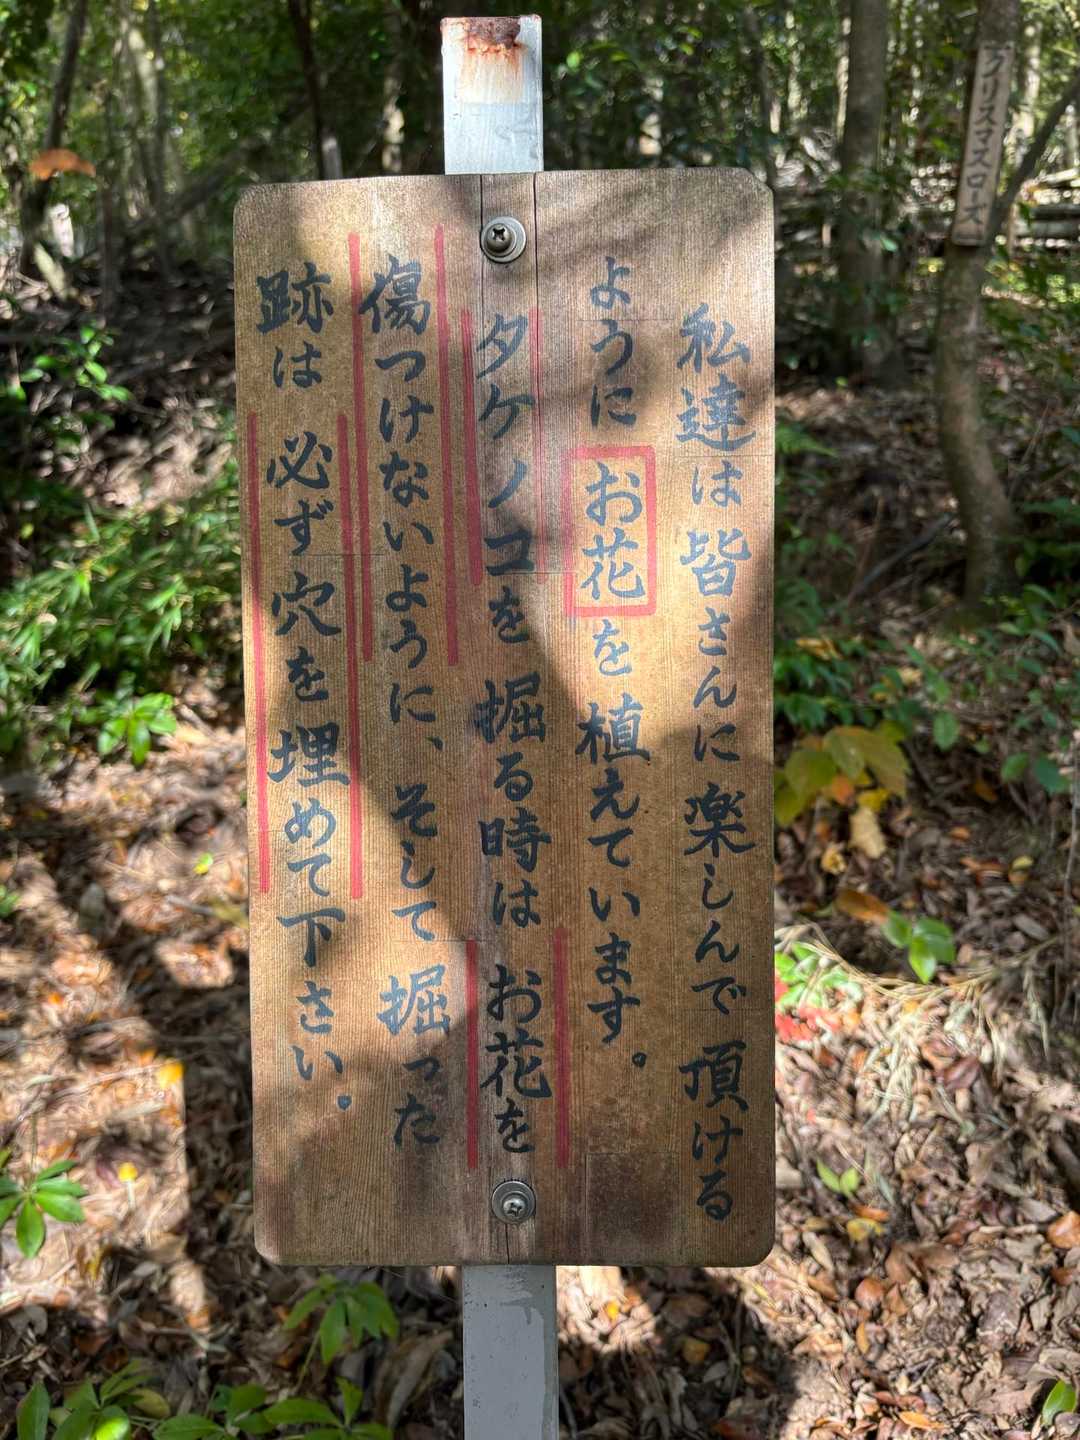 私達は皆さんに楽しんで頂ける
ように お花を植えています。
タケノコを掘る時は お花を
傷つけないように、そして掘った
跡は 必ず穴を埋めて下さい。
クリスマスローズ